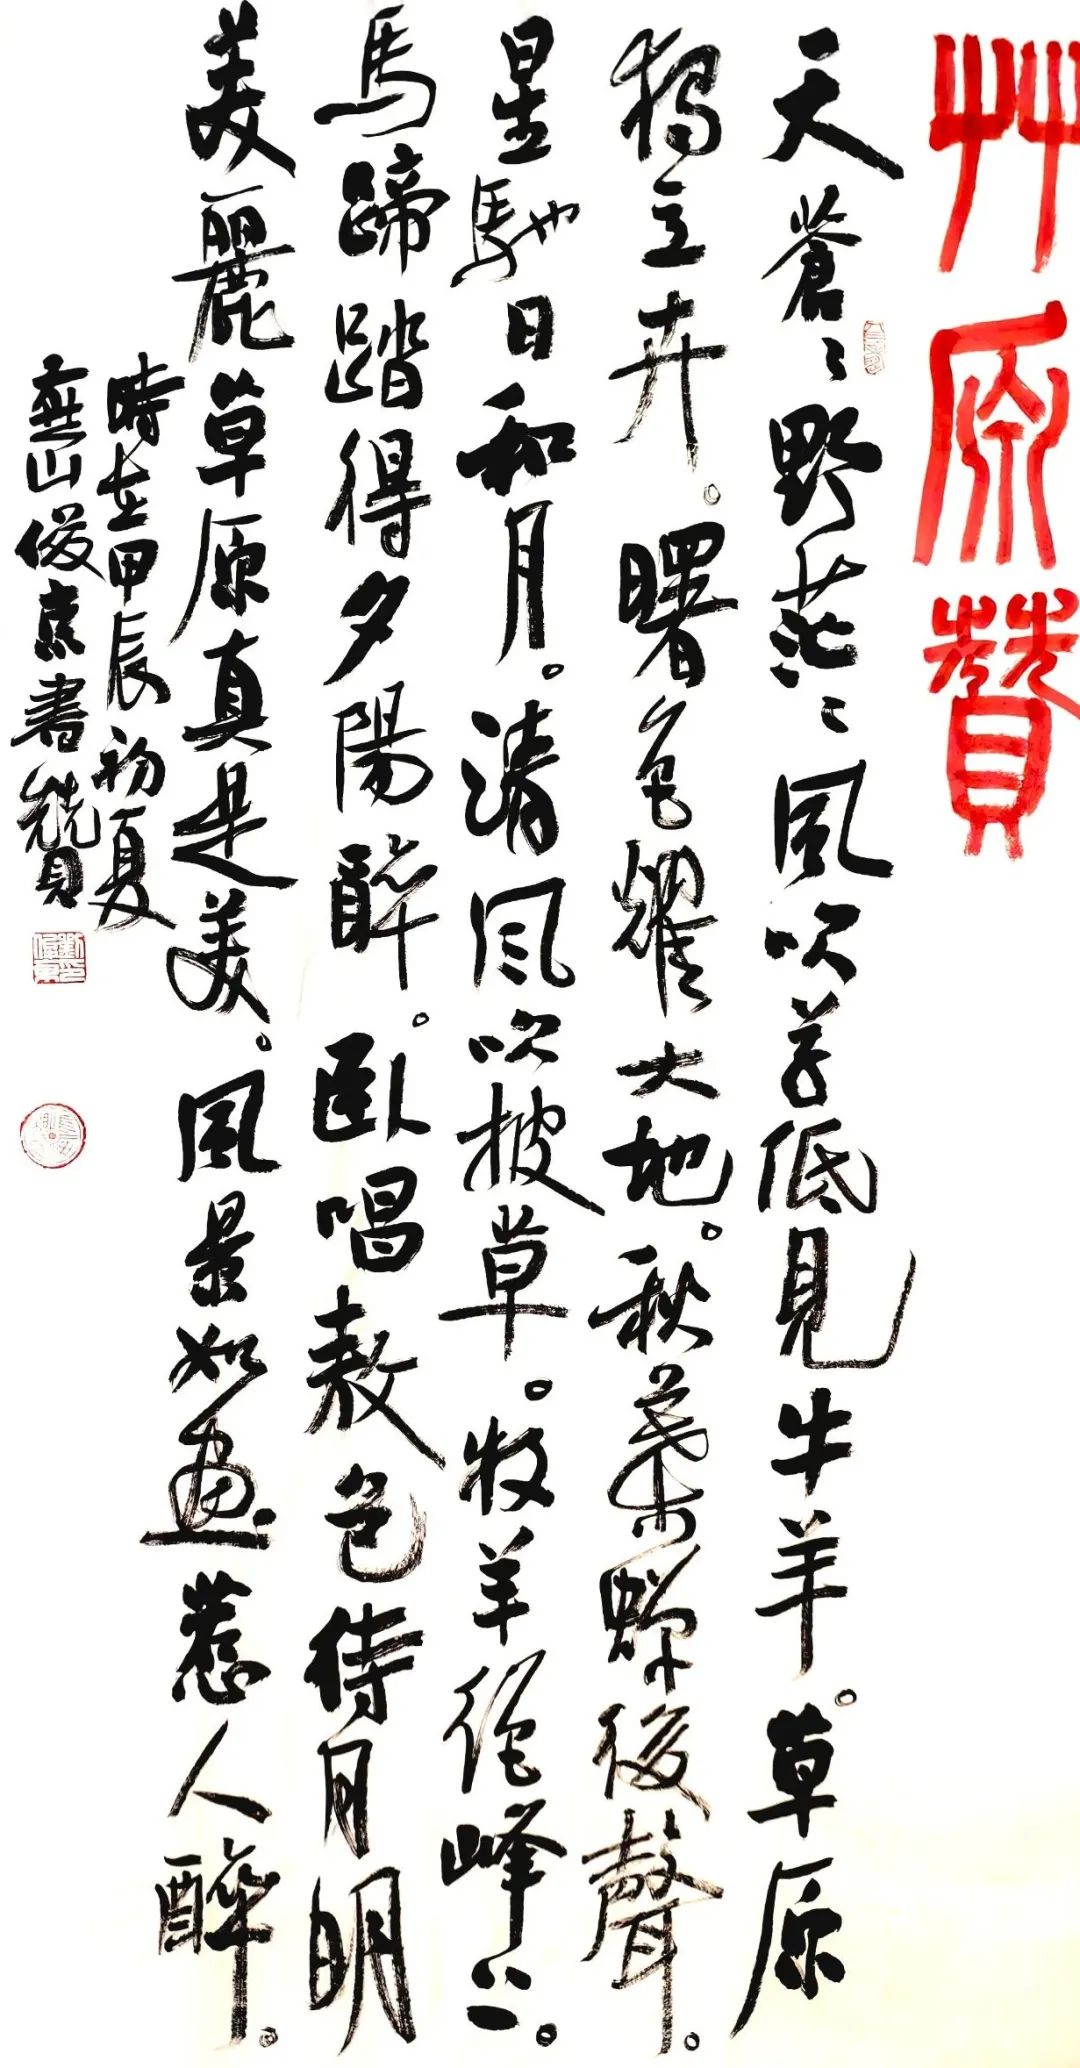 艸原贊
天蒼〻野茫〻風吹草低見牛羊。草原
獨立卉。曙色耀大地。秋葉蟬後聲。
星馳日和月。清风吹披草。牧羊絕峰上。
馬蹄踏得夕陽醉。臥唱敖包待月明
美麗草原真是美。風景如畫惹人醉。
時在甲辰初夏
山俊書贊